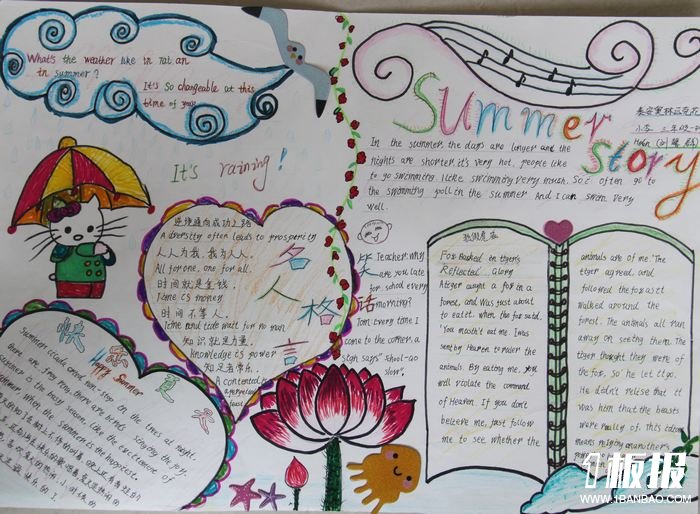 What's the weather like in
in summer?
It's so changeable at this
time of year
It's raining!
逆境通向成功之路
A diversity often leads to prosperity
人人为我,我为人人.
All for one, one for all.
时间就是金钱.
Time is money
时间不等人.
Time and tide wait for no man
知识就是力量.
Knowledge is power
知足者常乐.
A contented
is a perpetual
feast
名人格言
快乐夏天
Happy Summer
Summer cicada cried non-stop on the trees at night
there are
weather is the busy season, like the excitement of
summer, when the summer is the happiest.
Summer Story
In the summer the days are longer and the
nights are shorter. it's very hot, people like
to go swimming. I like swimming very much. So I often go to
the swimming pool in the summer And I can swim very
well.
笑话
Teacher: Why
are you late
for school every
morning?
Tom: Every time I
come to the corner, a
sign says" School-Go
slow".
狐假虎威
Fox Basked in tiger's
Reflected Glory
A tiger caught a fox in a
forest, and was just about
to eat it, when the fox said.
'You mustn't eat me. I was
sent by Heaven to ruler the
animals. By eating me, you
will violate the command
of Heaven. If you don't
beieve me, just follow
me to see whether the
animals are of me.' The
tiger agreed, and
followed the fox as it
walked around the
forest. The animals all run
away on seeing them. The
tiger thought they were of
the fox, so he let it go.
He didn't relise that it
was him that the beasts
were really of. this idiom
means relying on another's
1板报
WWW.1BANBAO.COM